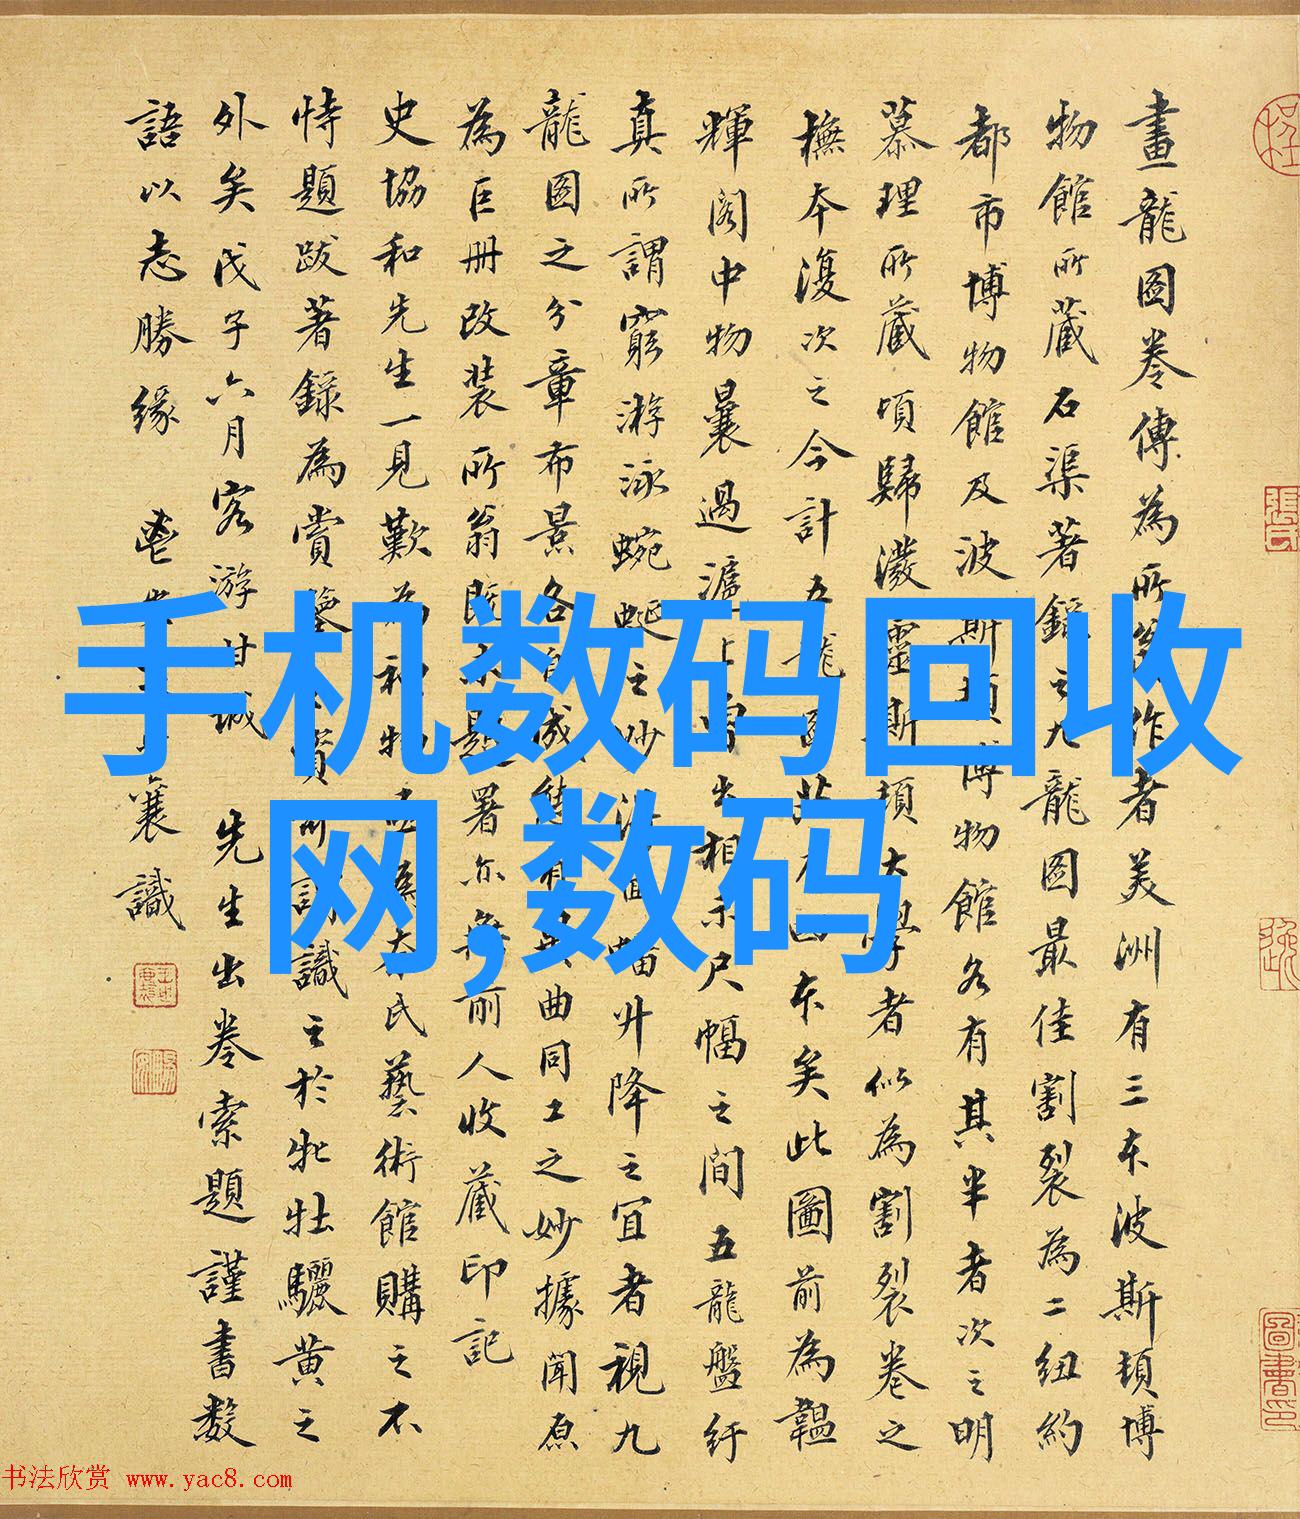 畫龍圖卷傳為所翁作者美洲有三本波斯頓博
物館所藏石渠著錄之九龍圖最佳割裂為二紐約
都市博物館及波斯頓博物館各有其半者次之明
慕理所藏頃歸瀲靈斯頓大學者似為割裂卷之
橅本復次之今計五龍圖 本矣此圖前為韞
輝閣中物曩過滬上曾出相示尺幅之間五龍盤紆
真所謂窮游泳蜿蜒之妙 升降之宜者視九
龍圖之分章布景各自成 曲同工之妙據聞原
為巨冊改裝所翁既未題署亦無前人收藏印記
史協和先生一見歎為神物 氏藝術館購之不
恃題跋著錄為賞鑒 識之於牝牡驪黃之
外矣戊子六月客游甘城 先生出卷索題謹書數
語以志勝緣 襄識
手机数码回收
网,数码
书法欣赏 www.yac8.com